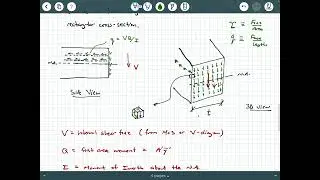 rectangular cross-section.
q = VQ/I
τ = Force/area
q = Force/length
N.A.
V
t
Side View
3D view
V = internal shear force (from MoS or V-diagram)
Q = first area moment = A'ȳ'
I = Moment of Inertia about the N.A.